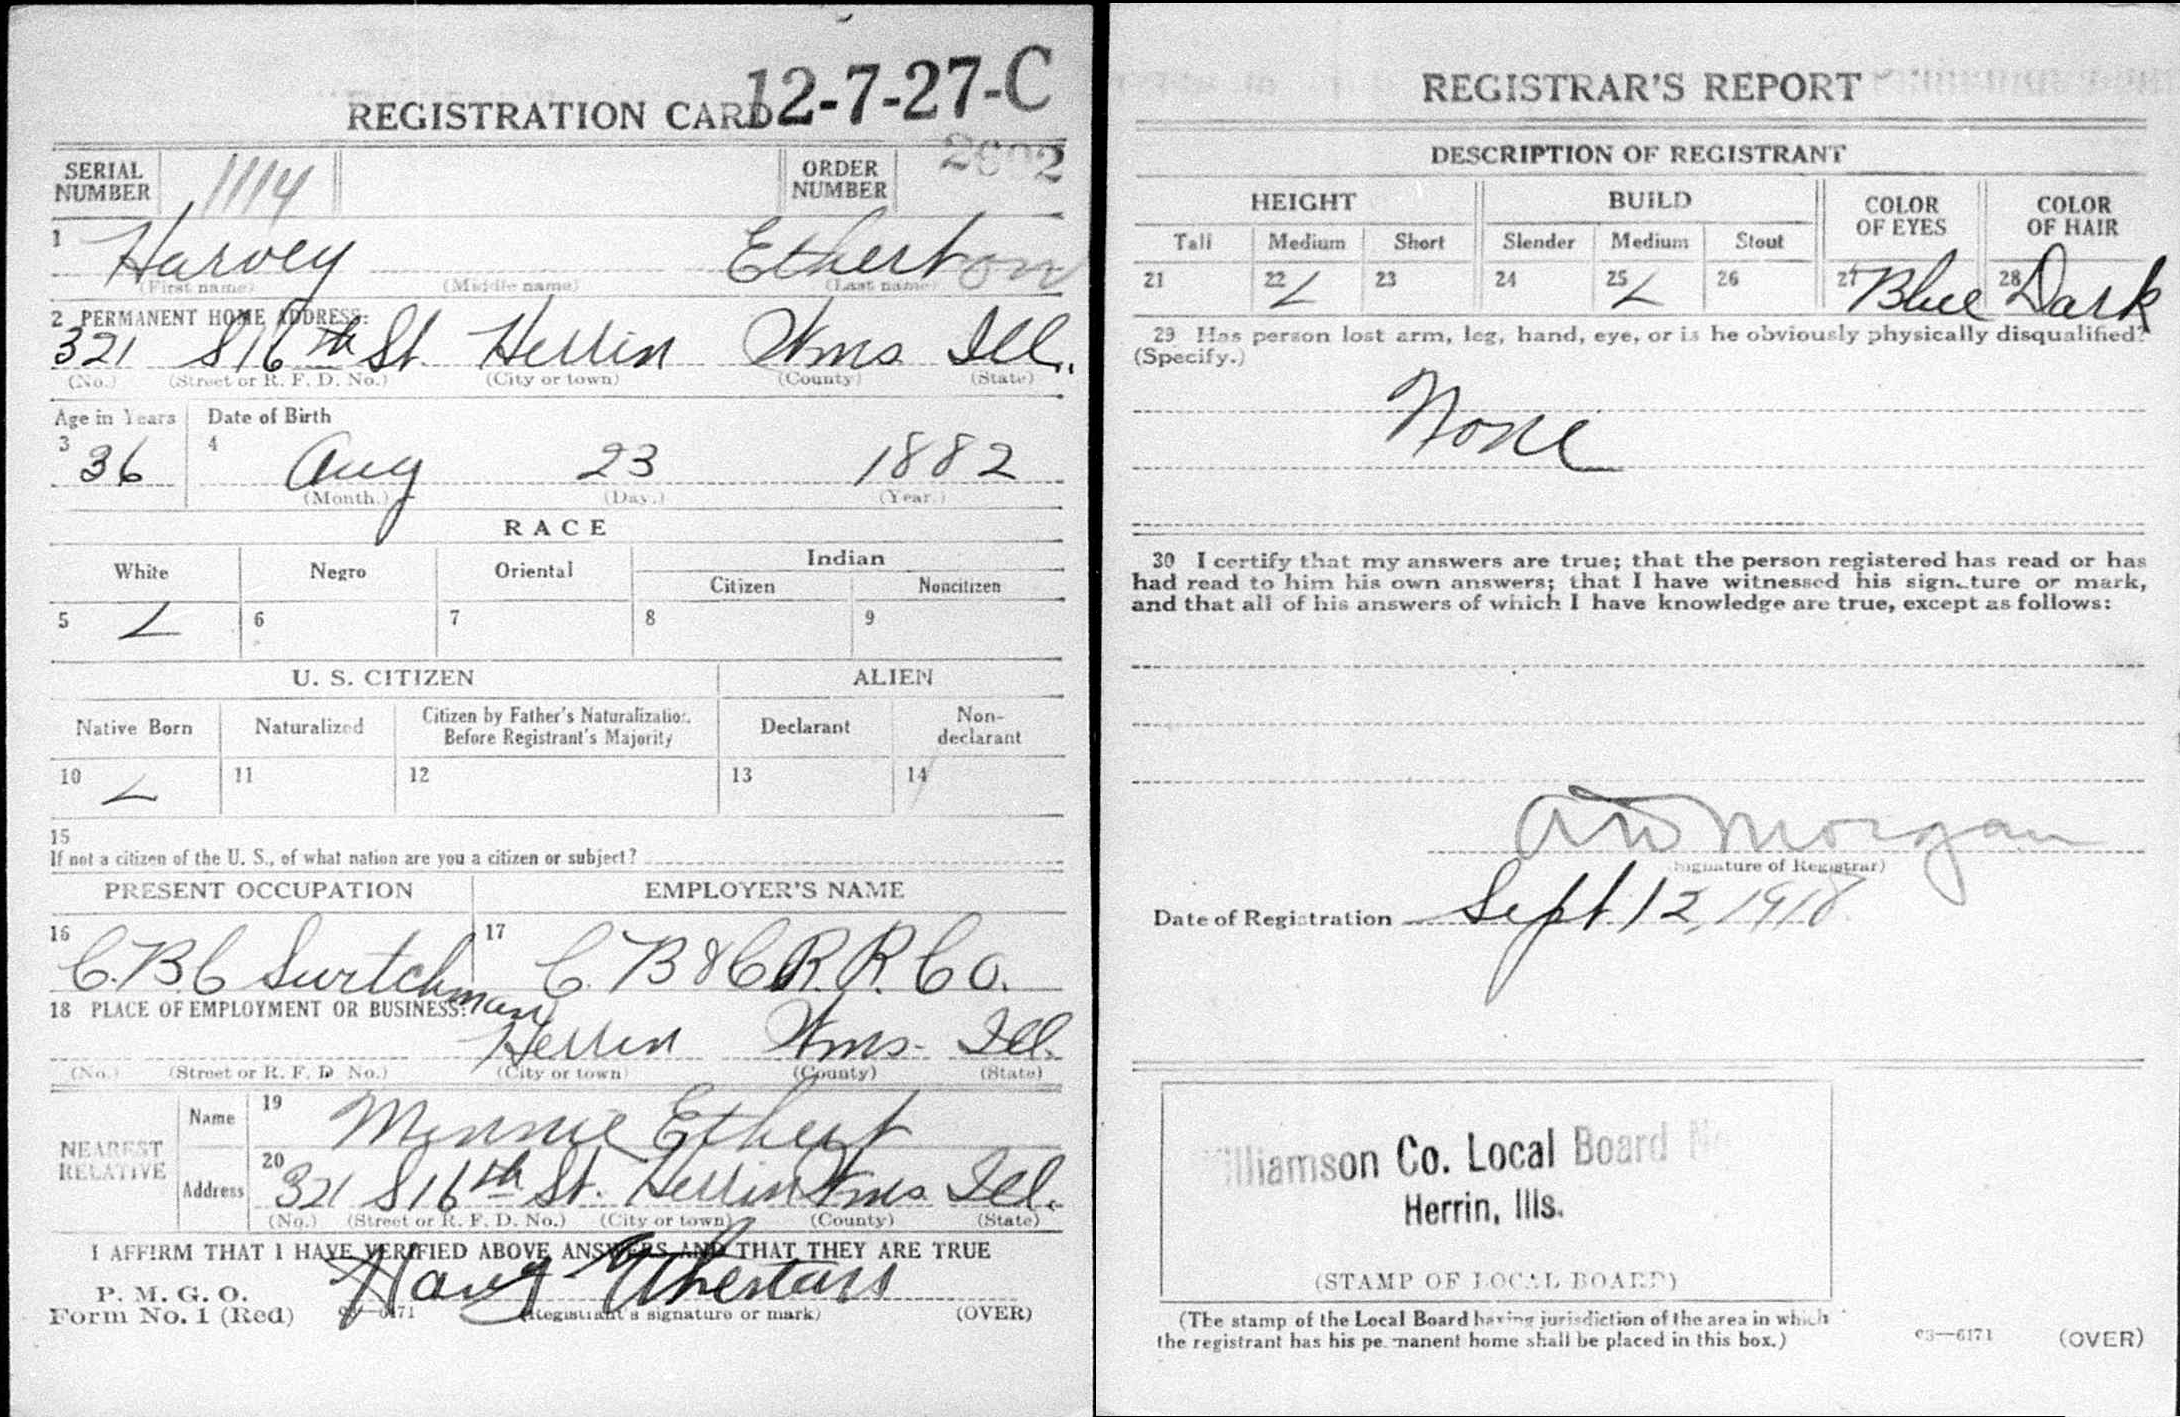 REGISTRATION CARD 12-7-27-C
SERIAL NUMBER 1114 ORDER NUMBER
1 Harvey Etherton
(First name) (Middle name) (Last name)
2 PERMANENT HOME ADDRESS:
321 S 16th St. Herrin Wms Ill.
(No.) (Street or R. F. D. No.) (City or town) (County) (State)
Age in Years Date of Birth
3 36 4 Aug 23 1882
(Month.) (Day.) (Year.)
RACE
White Negro Oriental Indian
Citizen Noncitizen
5 6 7 8 9
U. S. CITIZEN ALIEN
Native Born Naturalized Citizen by Father's Naturalization Before Registrant's Majority Declarant Non-declarant
10 11 12 13 14
15
If not a citizen of the U. S., of what nation are you a citizen or subject?
PRESENT OCCUPATION EMPLOYER'S NAME
16 C. B. C Swtchman 17 C. B & C R. R. Co.
18 PLACE OF EMPLOYMENT OR BUSINESS:
Herrin Wms. Ill.
(No.) (Street or R. F. D. No.) (City or town) (County) (State)
NEAREST RELATIVE
Name 19 Minnie Ethert
Address 20 321 S 16th St. Herrin Wms Ill.
(No.) (Street or R. F. D. No.) (City or town) (County) (State)
I AFFIRM THAT I HAVE VERIFIED ABOVE ANSWERS AND THAT THEY ARE TRUE
P. M. G. O.
Form No. 1 (Red) (Registrant's signature or mark) (OVER)
REGISTRAR'S REPORT
DESCRIPTION OF REGISTRANT
HEIGHT BUILD COLOR OF EYES COLOR OF HAIR
Tall Medium Short Slender Medium Stout
21 22 23 24 25 26 27 Blue 28 Dark
29 Has person lost arm, leg, hand, eye, or is he obviously physically disqualified?
(Specify.)
None
30 I certify that my answers are true; that the person registered has read or has
had read to him his own answers; that I have witnessed his signature or mark,
and that all of his answers of which I have knowledge are true, except as follows:
A W Morgan
(Signature of Registrar)
Date of Registration Sept. 12, 1918
Williamson Co. Local Board
Herrin, Ills.
(STAMP OF LOCAL BOARD)
(The stamp of the Local Board having jurisdiction of the area in which
the registrant has his permanent home shall be placed in this box.)
03—6171 (OVER)